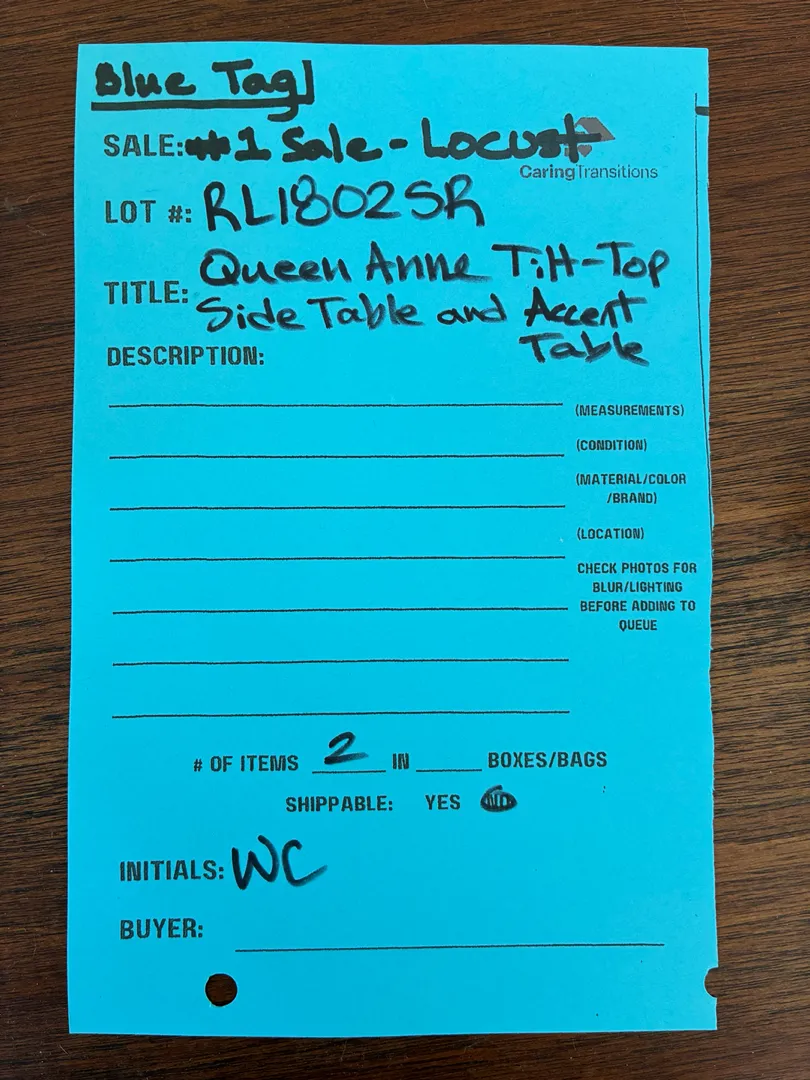 Blue Tag
SALE: #1 Sale - Locust
CaringTransitions
LOT #: RL1802SR
TITLE: Queen Anne Tilt-Top
Side Table and Accent
Table
DESCRIPTION:
(MEASUREMENTS)
(CONDITION)
(MATERIAL/COLOR
/BRAND)
(LOCATION)
CHECK PHOTOS FOR
BLUR/LIGHTING
BEFORE ADDING TO
QUEUE
# OF ITEMS 2 IN BOXES/BAGS
SHIPPABLE: YES NO
INITIALS: WC
BUYER: